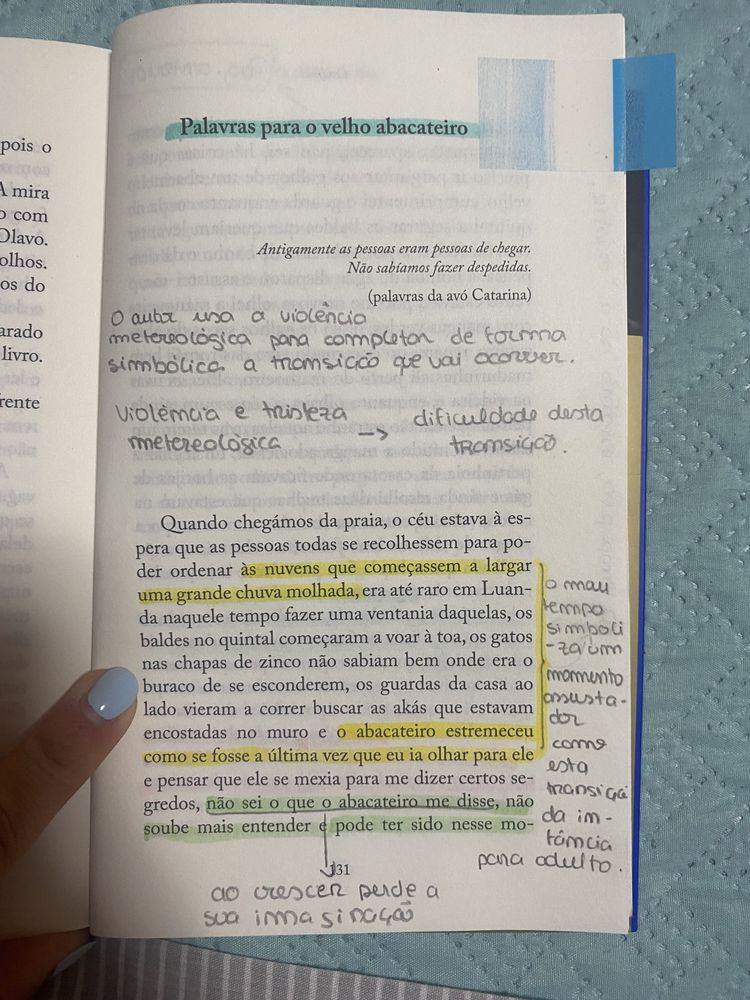 pois o
A mira
o com
Olavo.
olhos.
os do
arado
livro.
rente
Palavras para o velho abacateiro
Antigamente as pessoas eram pessoas de chegar.
Não sabíamos fazer despedidas.
(palavras da avó Catarina)
O autor usa a violência
metereológica para completar de forma
simbólica a transição que vai ocorrer.
Violência e tristeza
metereológica -> dificuldade desta
transição.
Quando chegámos da praia, o céu estava à es-
pera que as pessoas todas se recolhessem para po-
der ordenar às nuvens que começassem a largar
uma grande chuva molhada, era até raro em Luan-
da naquele tempo fazer uma ventania daquelas, os
baldes no quintal começaram a voar à toa, os gatos
nas chapas de zinco não sabiam bem onde era o
buraco de se esconderem, os guardas da casa ao
lado vieram a correr buscar as akás que estavam
encostadas no muro e o abacateiro estremeceu
como se fosse a última vez que eu ia olhar para ele
e pensar que ele se mexia para me dizer certos se-
gredos, não sei o que o abacateiro me disse, não
soube mais entender e pode ter sido nesse mo-
o mau
tempo
simboli
-za um
momento
assusta-
dor
como
esta
transiçã
da in-
fância
para adulto.
131
ao crescer perde a
sua imaginação